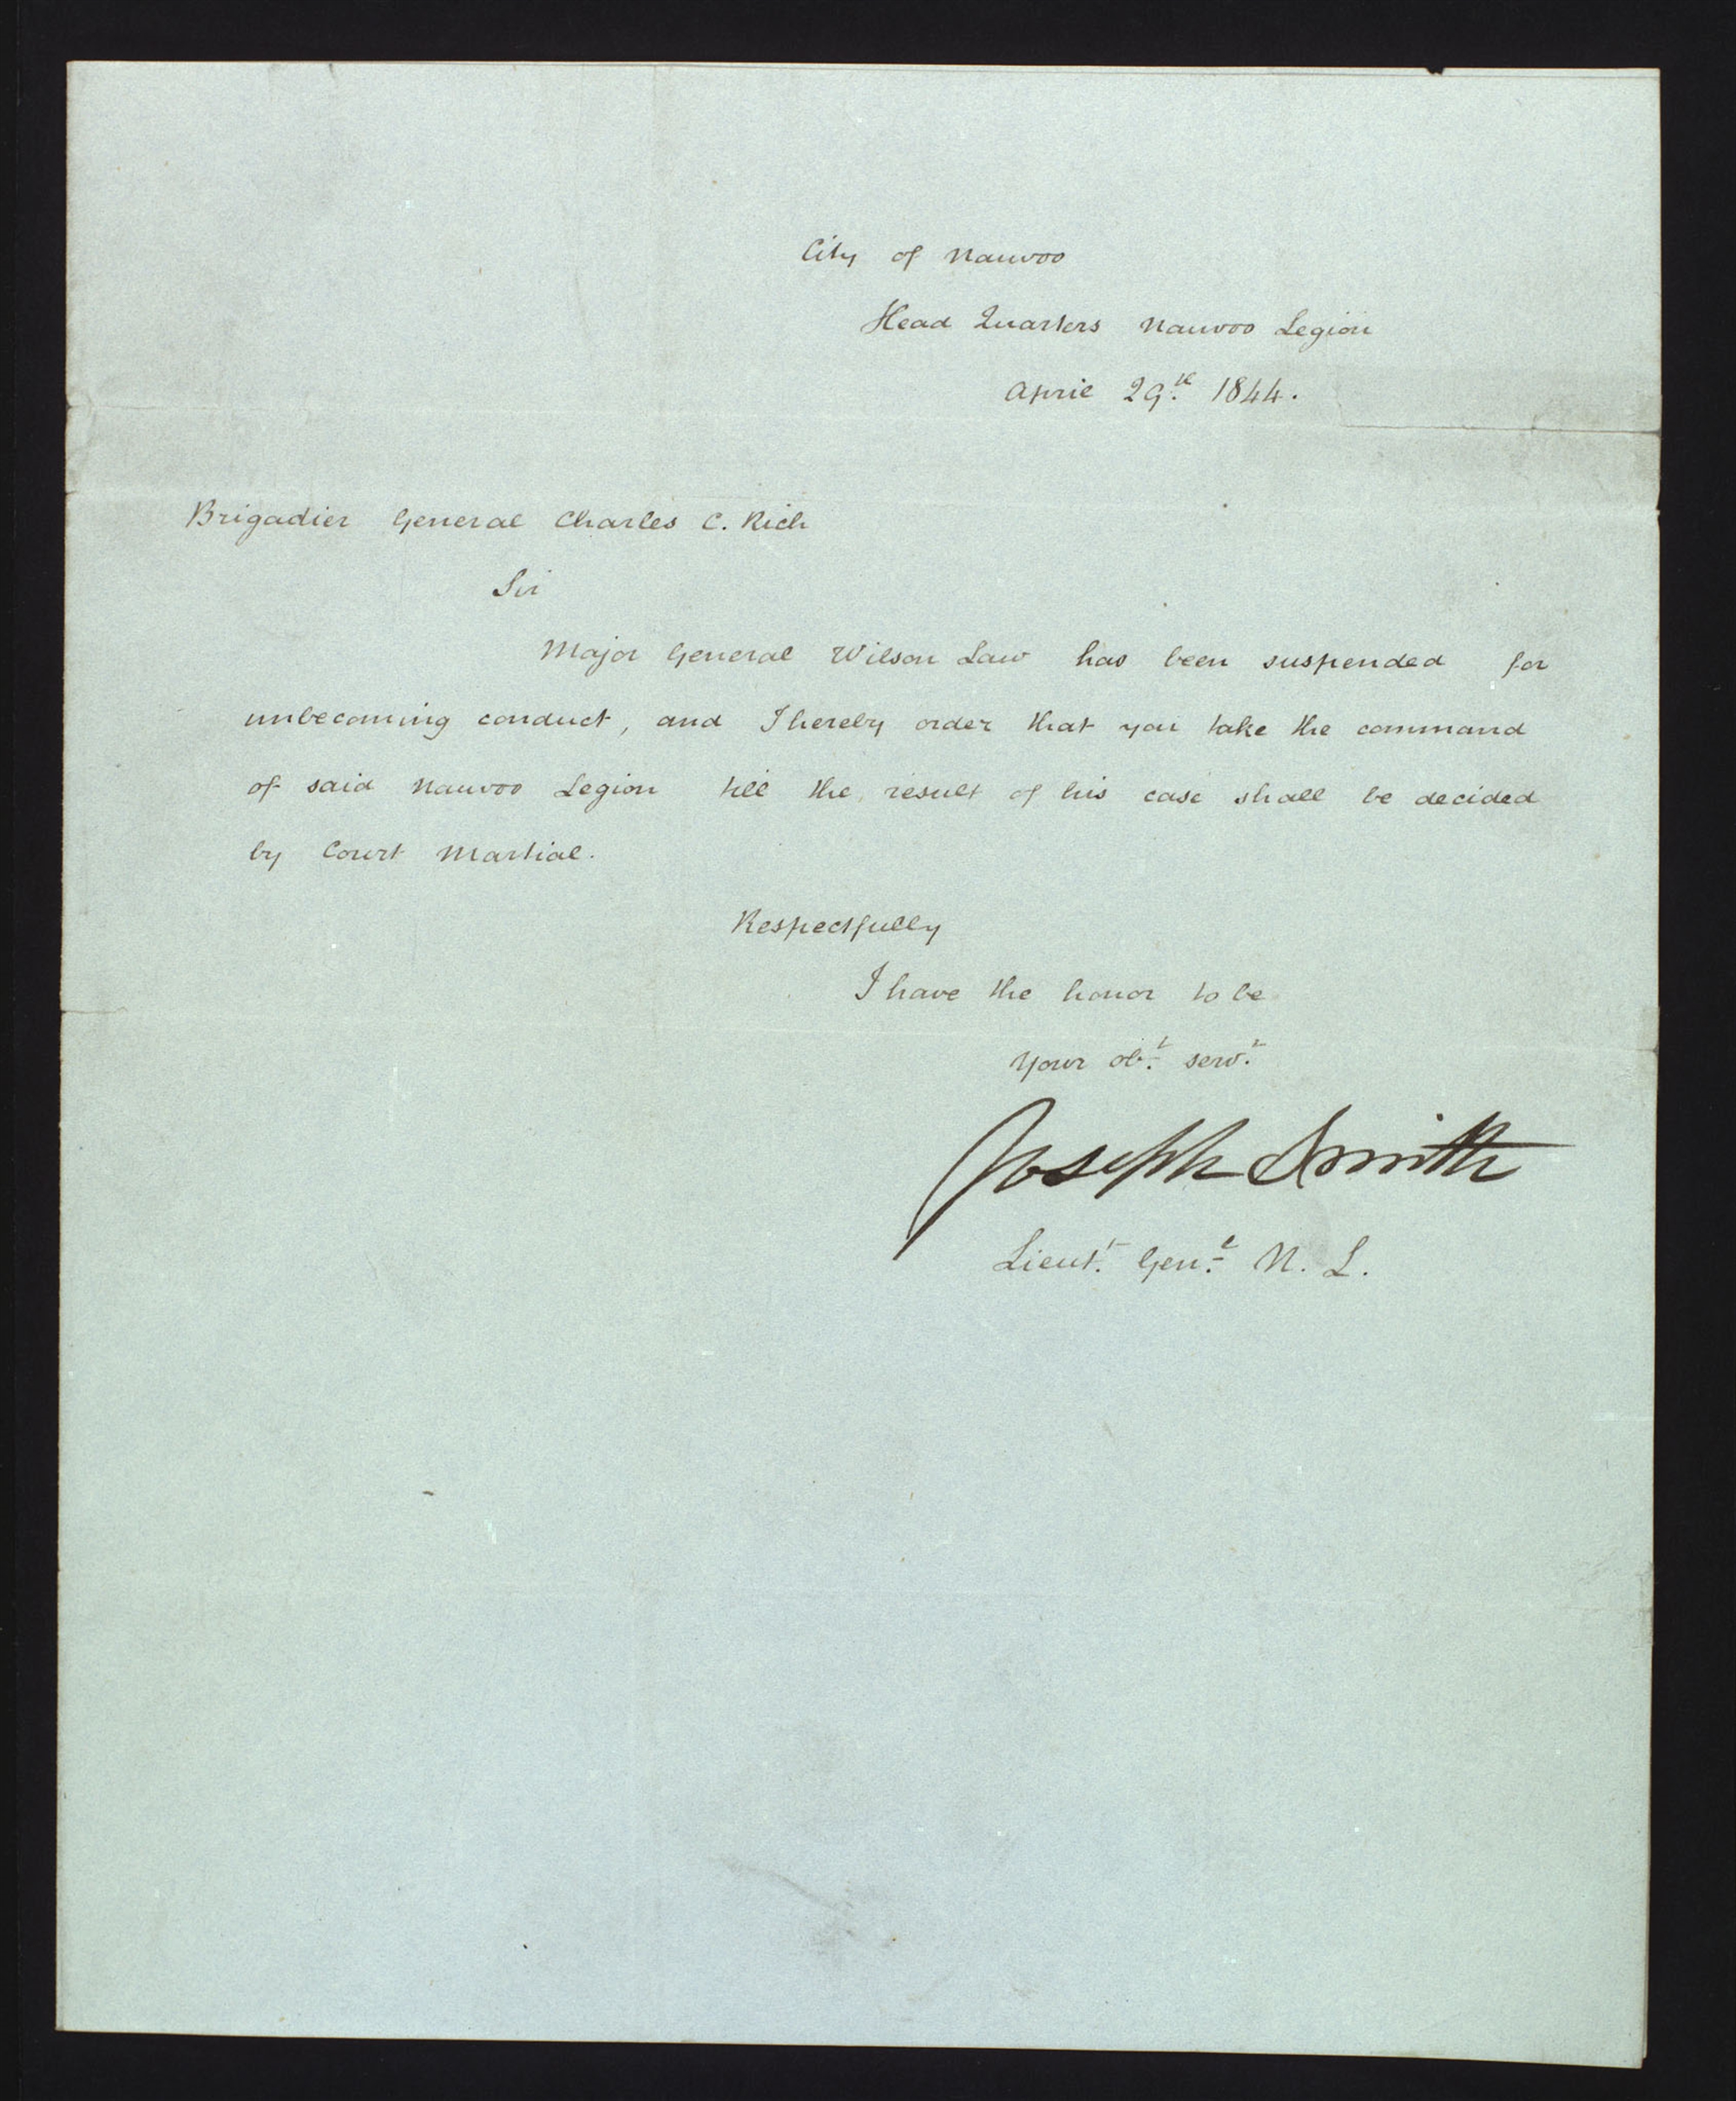 City of Nauvoo
Head Quarters Nauvoo Legion
April 29.th 1844.
Brigadier General Charles C. Rich
Sir
Major General Wilson Law has been suspended for
unbecoming conduct, and I hereby order that you take the command
of said Nauvoo Legion till the result of his case shall be decided
by Court Martial.
Respectfully
I have the honor to be
Your ob.t serv.t
Joseph Smith
Lieut.t Gen.l N. L.